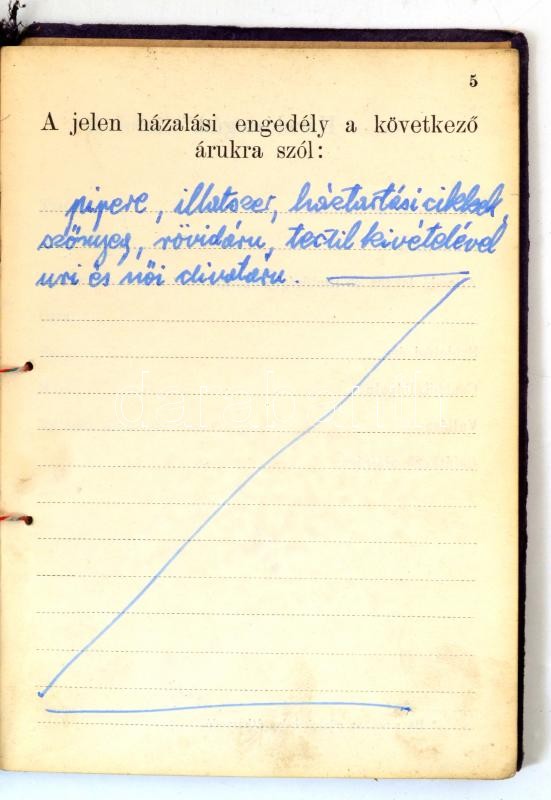 5
A jelen házalási engedély a következő
árukra szól:
pipere, illatszer, háztartási cikkek,
szőnyeg, rövidáru, textil kivételével
uri és női divatáru.